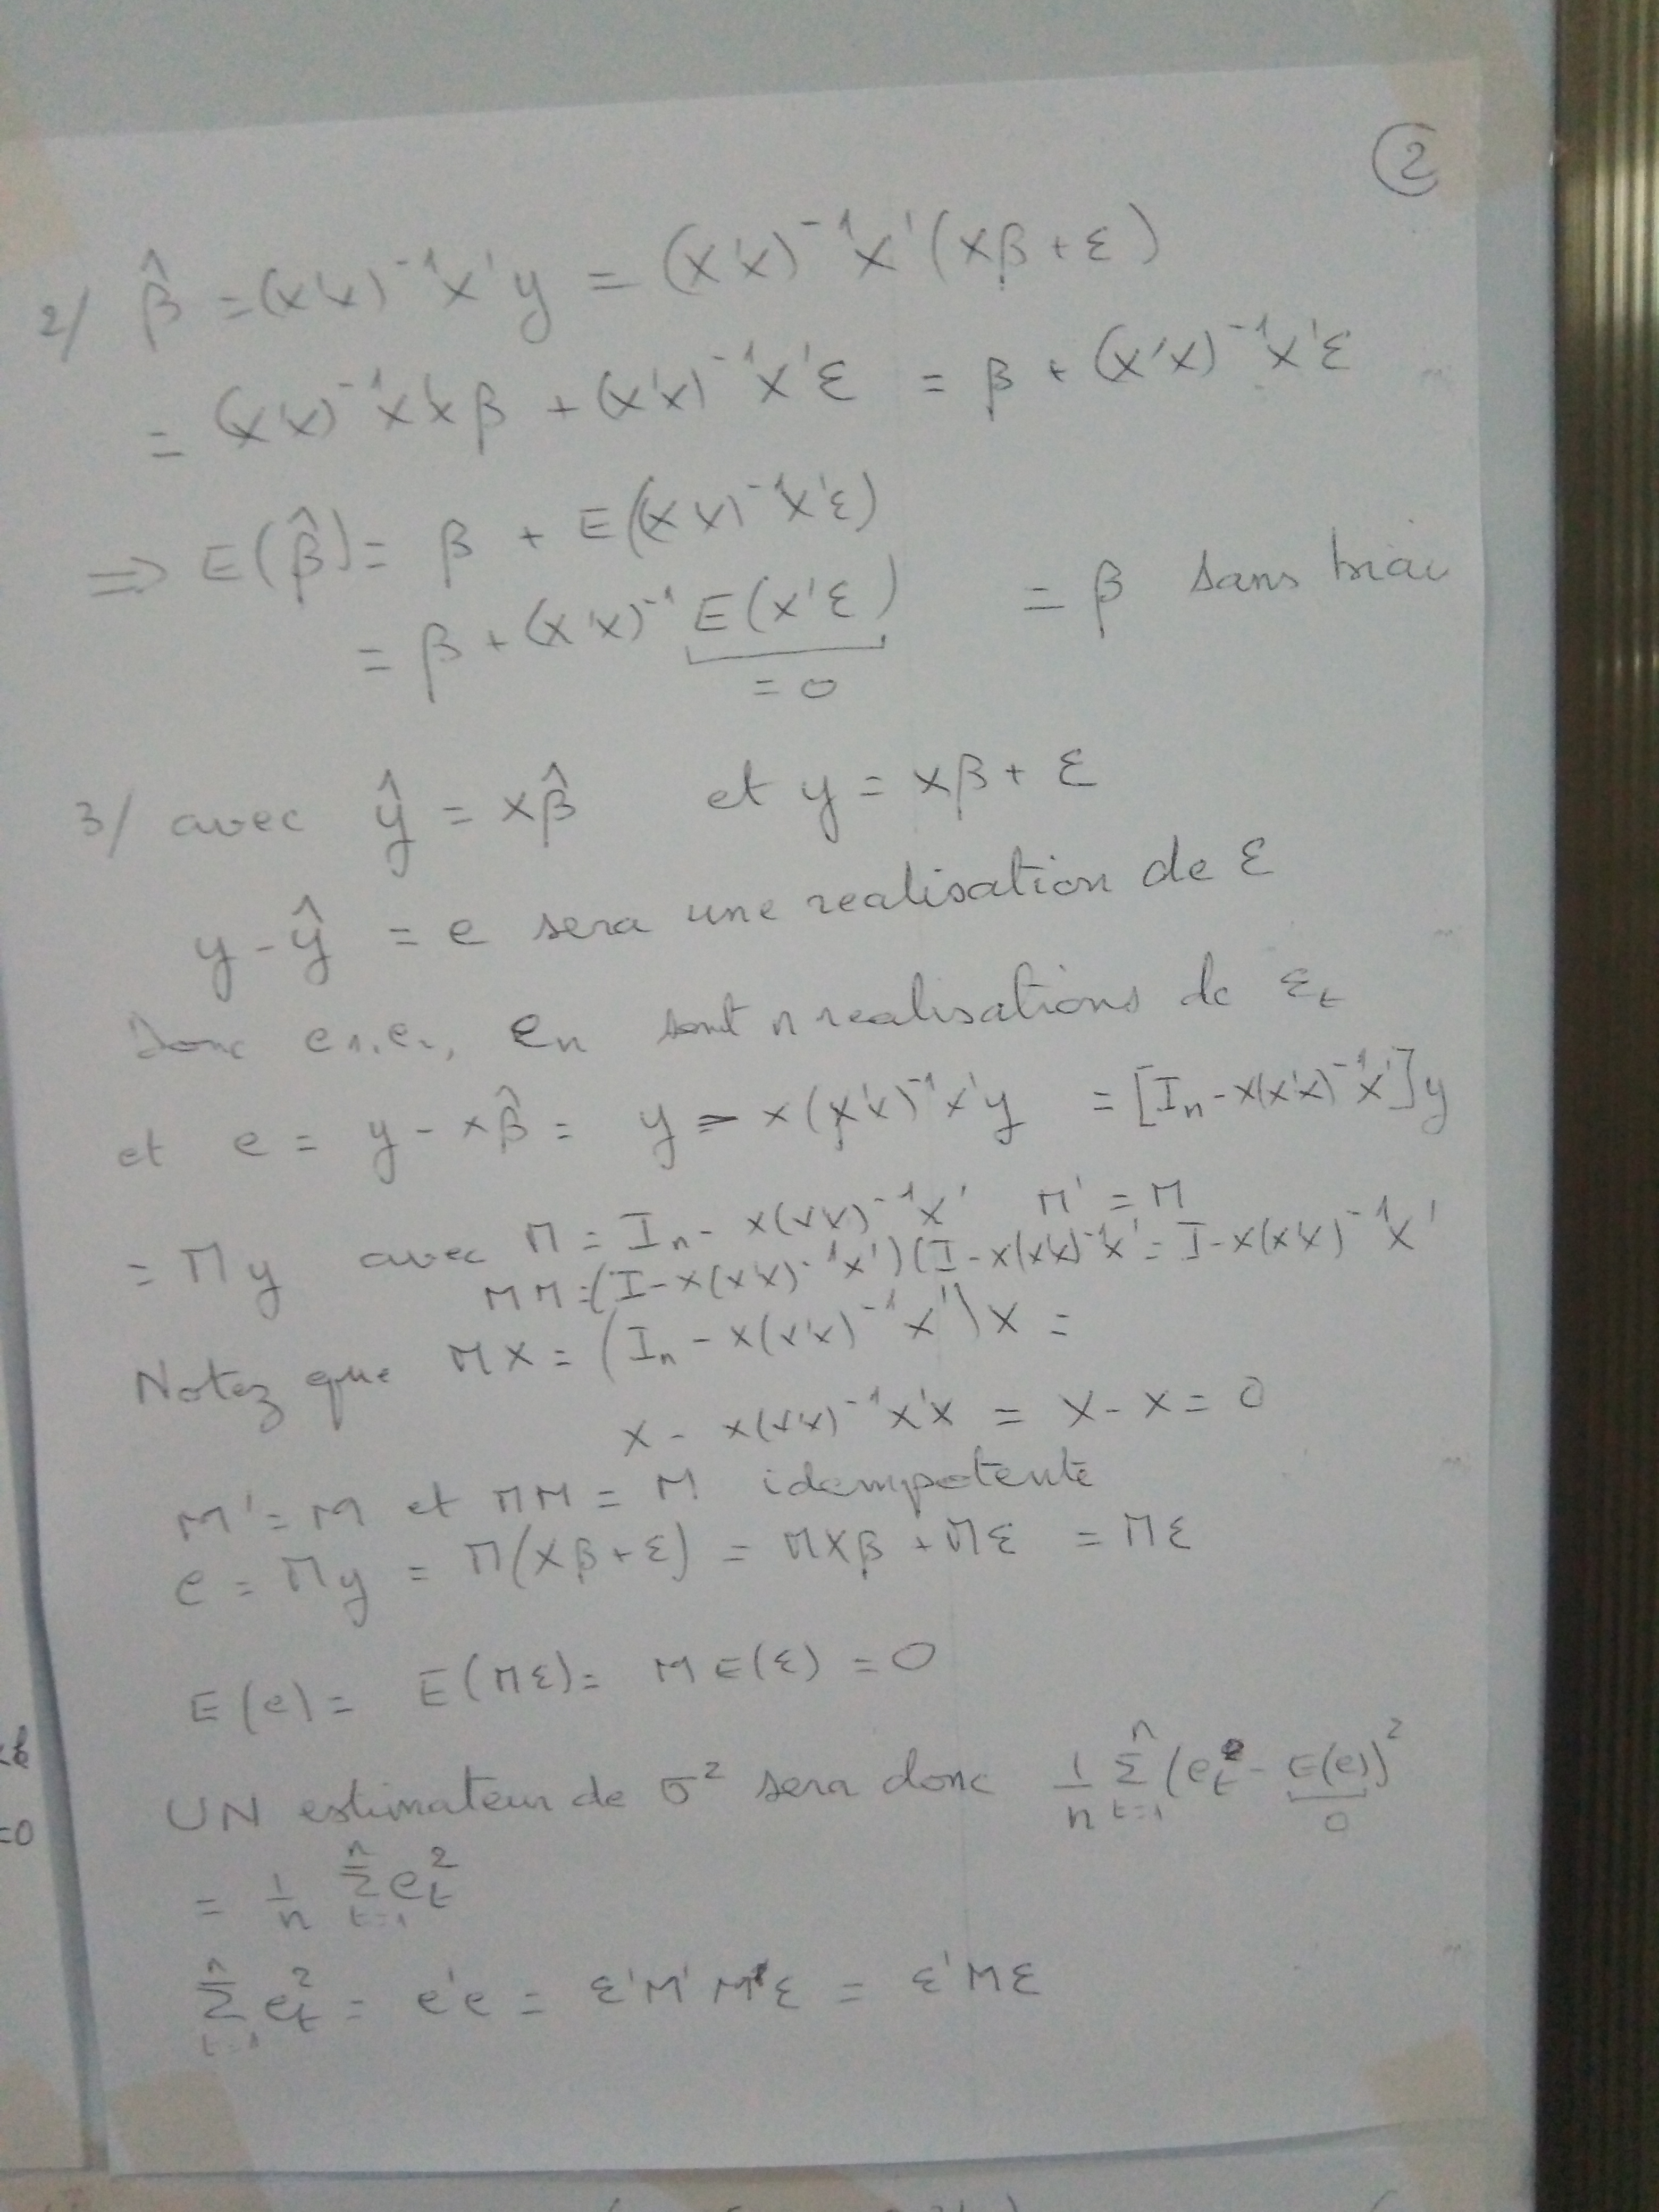 ②
2/ β̂ = (x'x)⁻¹x'y = (x'x)⁻¹x'(xβ + ε)
= (x'x)⁻¹x'xβ + (x'x)⁻¹x'ε = β + (x'x)⁻¹x'ε
⇒ E(β̂) = β + E((x'x)⁻¹x'ε)
= β + (x'x)⁻¹ E(x'ε) = β sans biais
= 0
3/ avec ŷ = xβ̂ et y = xβ + ε
y - ŷ = e sera une realisation de ε
Donc e₁, e₂, eₙ sont n realisations de εₜ
et e = y - xβ̂ = y - x(x'x)⁻¹x'y = [Iₙ - x(x'x)⁻¹x']y
= My avec M = Iₙ - x(x'x)⁻¹x' M' = M
MM = (I - x(x'x)⁻¹x')(I - x(x'x)⁻¹x' = I - x(x'x)⁻¹x'
Notez que MX = (Iₙ - x(x'x)⁻¹x')x =
x - x(x'x)⁻¹x'x = x - x = 0
M' = M et MM = M idempotente
e = My = M(Xβ + ε) = MXβ + Mε = Mε
E(e) = E(Mε) = M E(ε) = 0
UN estimateur de σ² sera donc 1/n Σₜ₌₁ⁿ (eₜ - E(e))²
0
= 1/n Σₜ₌₁ⁿ eₜ²
Σₜ₌₁ⁿ eₜ² = e'e = ε'M'Mε = ε'Mε
=0